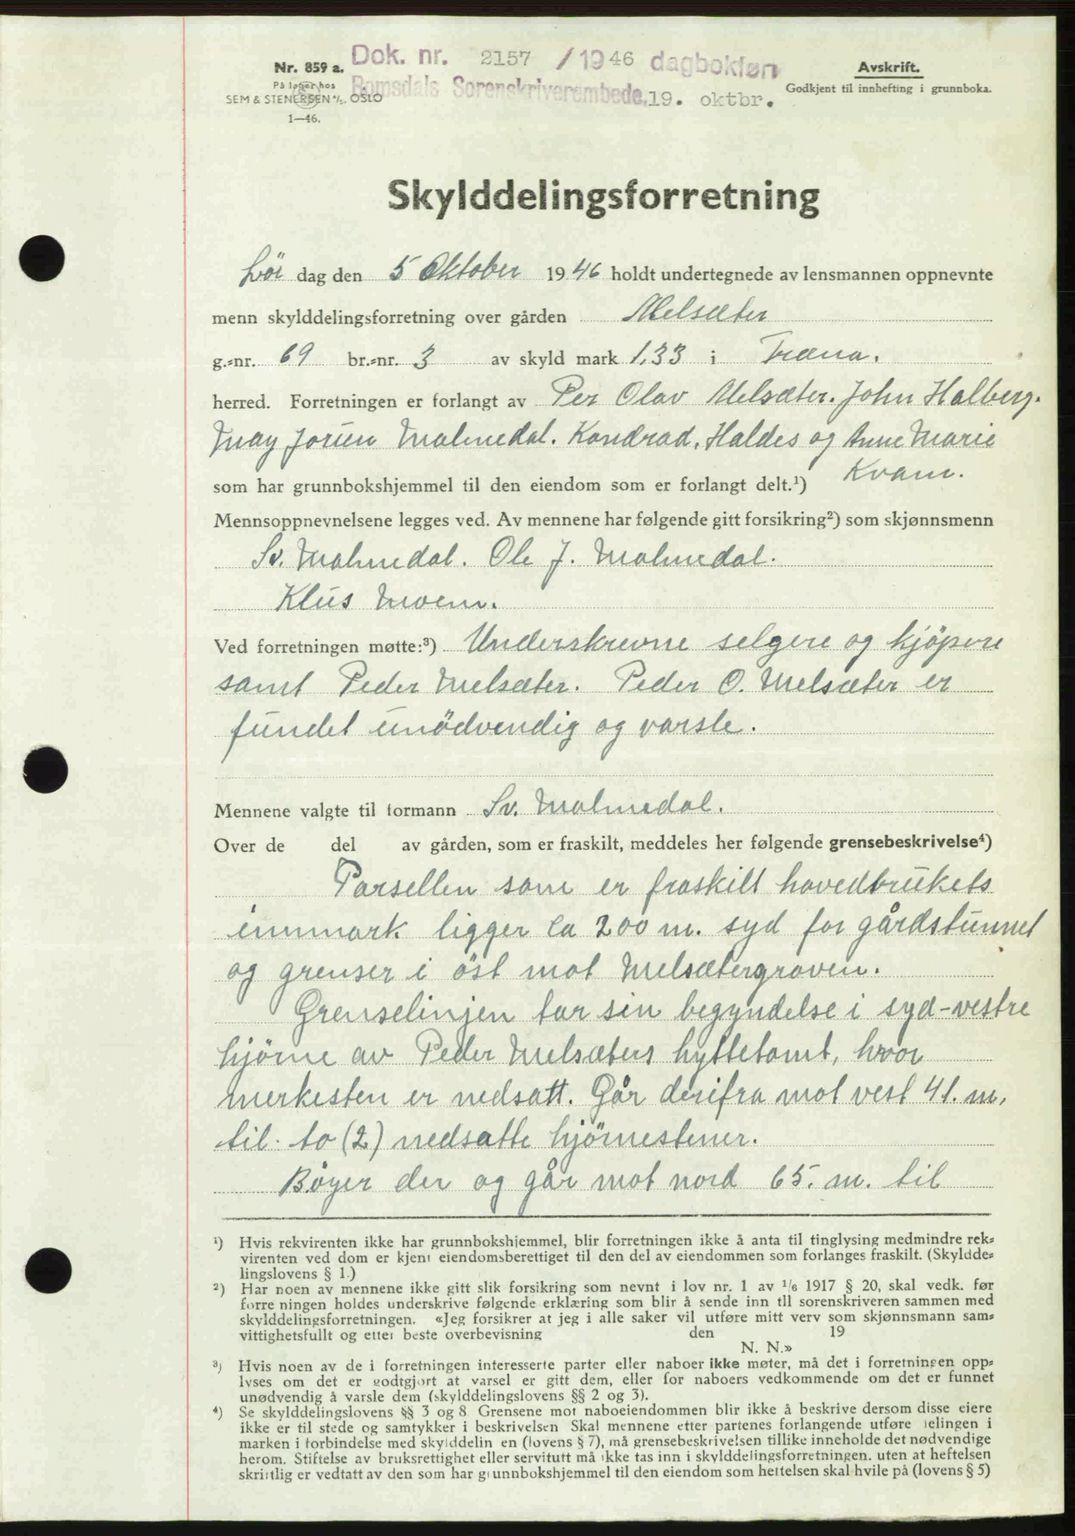 Nr. 859 a.
På lager hos
SEM & STENERSEN A/S, OSLO
1—46.
Dok. nr. 2157 /1946 dagbokføn
Romsdals Sorenskriverembede, 19. oktbr.
Avskrift.
Godkjent til innhefting i grunnboka.
Skylddelingsforretning
Lør dag den 5 Oktober 1946 holdt undertegnede av lensmannen oppnevnte
menn skylddelingsforretning over gården Melsæter
g.=nr. 69 br.=nr. 3 av skyld mark 1,33 i Fræna.
herred. Forretningen er forlangt av Per Olav Melsæter. John Halberg.
May Jorun Malmedal. Kondrad, Haldes og Anne Marie
Kvam.
som har grunnbokshjemmel til den eiendom som er forlangt delt.¹)
Mennsoppnevnelsene legges ved. Av mennene har følgende gitt forsikring²) som skjønnsmenn
Sv. Malmedal. Ole J. Malmedal.
Klus Moen.
Ved forretningen møtte:³) Underskrevne selgere og kjöpere
samt Peder Melsæter. Peder O. Melsæter er
fundet unödvendig og varsle.
Mennene valgte til formann Sv. Malmedal.
Over de del av gården, som er fraskilt, meddeles her følgende grensebeskrivelse⁴)
Parsellen som er fraskilt hovedbrukets
innmark ligger ca 200 m. syd for gårdstunnet
og grenser i öst mot Melsætergroven.
Grenselinjen tar sin begyndelse i syd-vestre
hjörne av Peder Melsæters hyttetomt, hvor
merkesten er nedsatt. Går derifra mot vest 41. m,
til to (2) nedsatte hjörnestener.
Böyer der og går mot nord 65. m. til
¹) Hvis rekvirenten ikke har grunnbokshjemmel, blir forretningen ikke å anta til tinglysing medmindre rek=
virenten ved dom er kjent eiendomsberettiget til den del av eiendommen som forlanges fraskilt. (Skyldde=
lingslovens § 1.)
²) Har noen av mennene ikke gitt slik forsikring som nevnt i lov nr. 1 av ¹/₆ 1917 § 20, skal vedk. før
forre ningen holdes underskrive følgende erklæring som blir å sende inn til sorenskriveren sammen med
skylddelingsforretningen. «Jeg forsikrer at jeg i alle saker vil utføre mitt verv som skjønnsmann sam=
vittighetsfullt og etter beste overbevisning den 19
N. N.»
³) Hvis noen av de i forretningen interesserte parter eller naboer ikke møter, må det i forretningen opp=
lyses om det er godtgjort at varsel er gitt dem, eller for naboers vedkommende om det er funnet
unødvendig å varsle dem (skylddelingslovens §§ 2 og 3).
⁴) Se skylddelingslovens §§ 3 og 8. Grensene mot naboeiendommen blir ikke å beskrive dersom disse eiere
ikke er til stede og samtykker i beskrivelsen Skal mennene etter partenes forlangende utføre delingen i
marken i forbindelse med skylddelin en (lovens § 7), må grensebeskrivelsen tillike inneholde det nødvendige
herom. Stiftelse av bruksrettighet eller servitutt må ikke tas inn i skylddelingsforretningen. uten at heftelsen
skriftlig er vedtatt av den som har grunnbokshjemmel til den eiendom som heftelsen skal hvile på (lovens § 5)